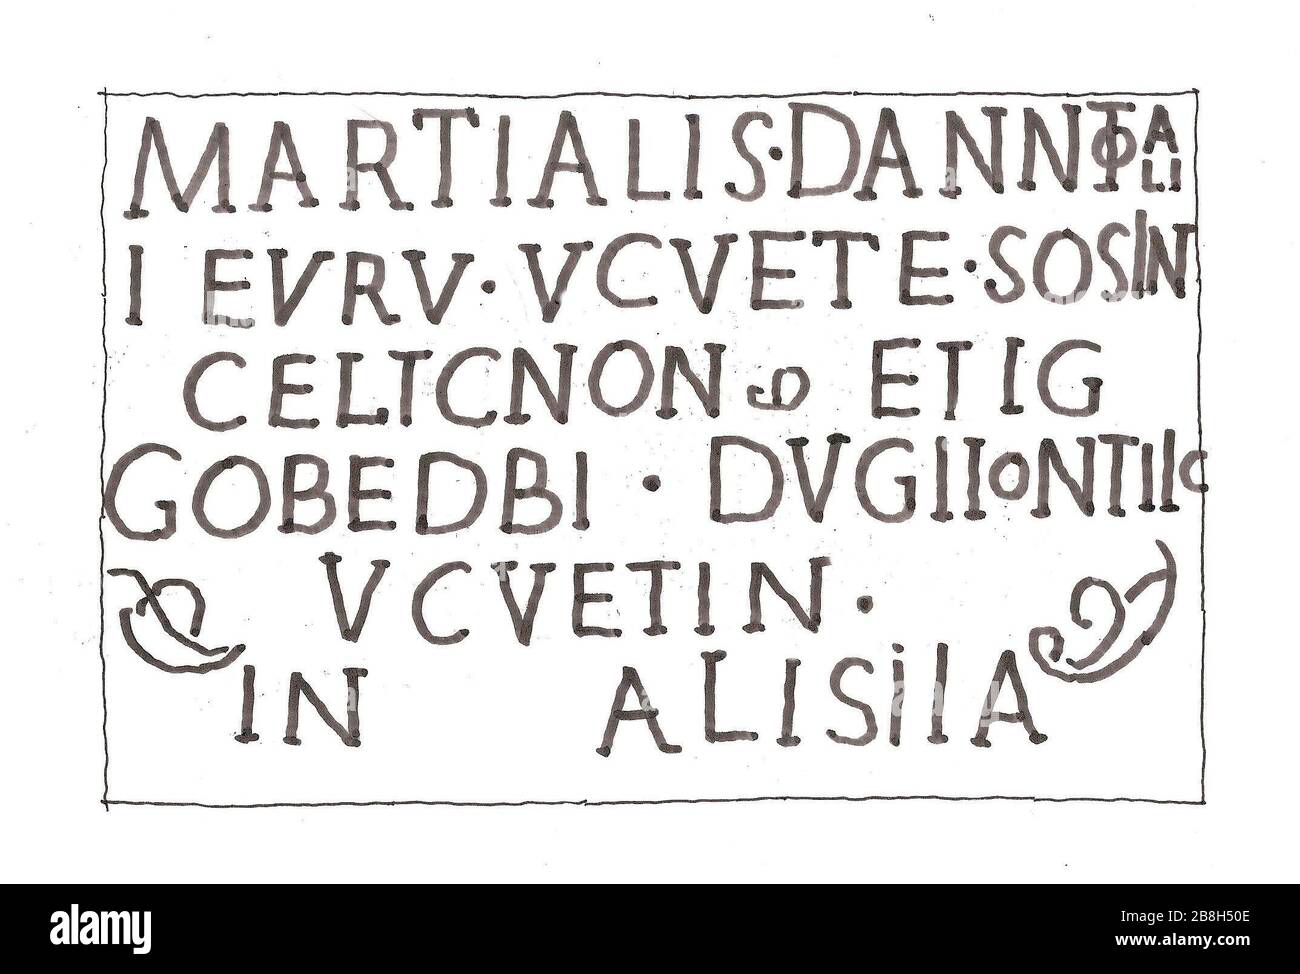 MARTIALIS·DANNOTALI
IEVRV·VCVETE·SOSIN
CELICNON ETIG
GOBEDBI·DVGIIONTIIO
VCVETIN·
IN ALISIIA
alamy
Image ID: 2B8H50E
www.alamy.com